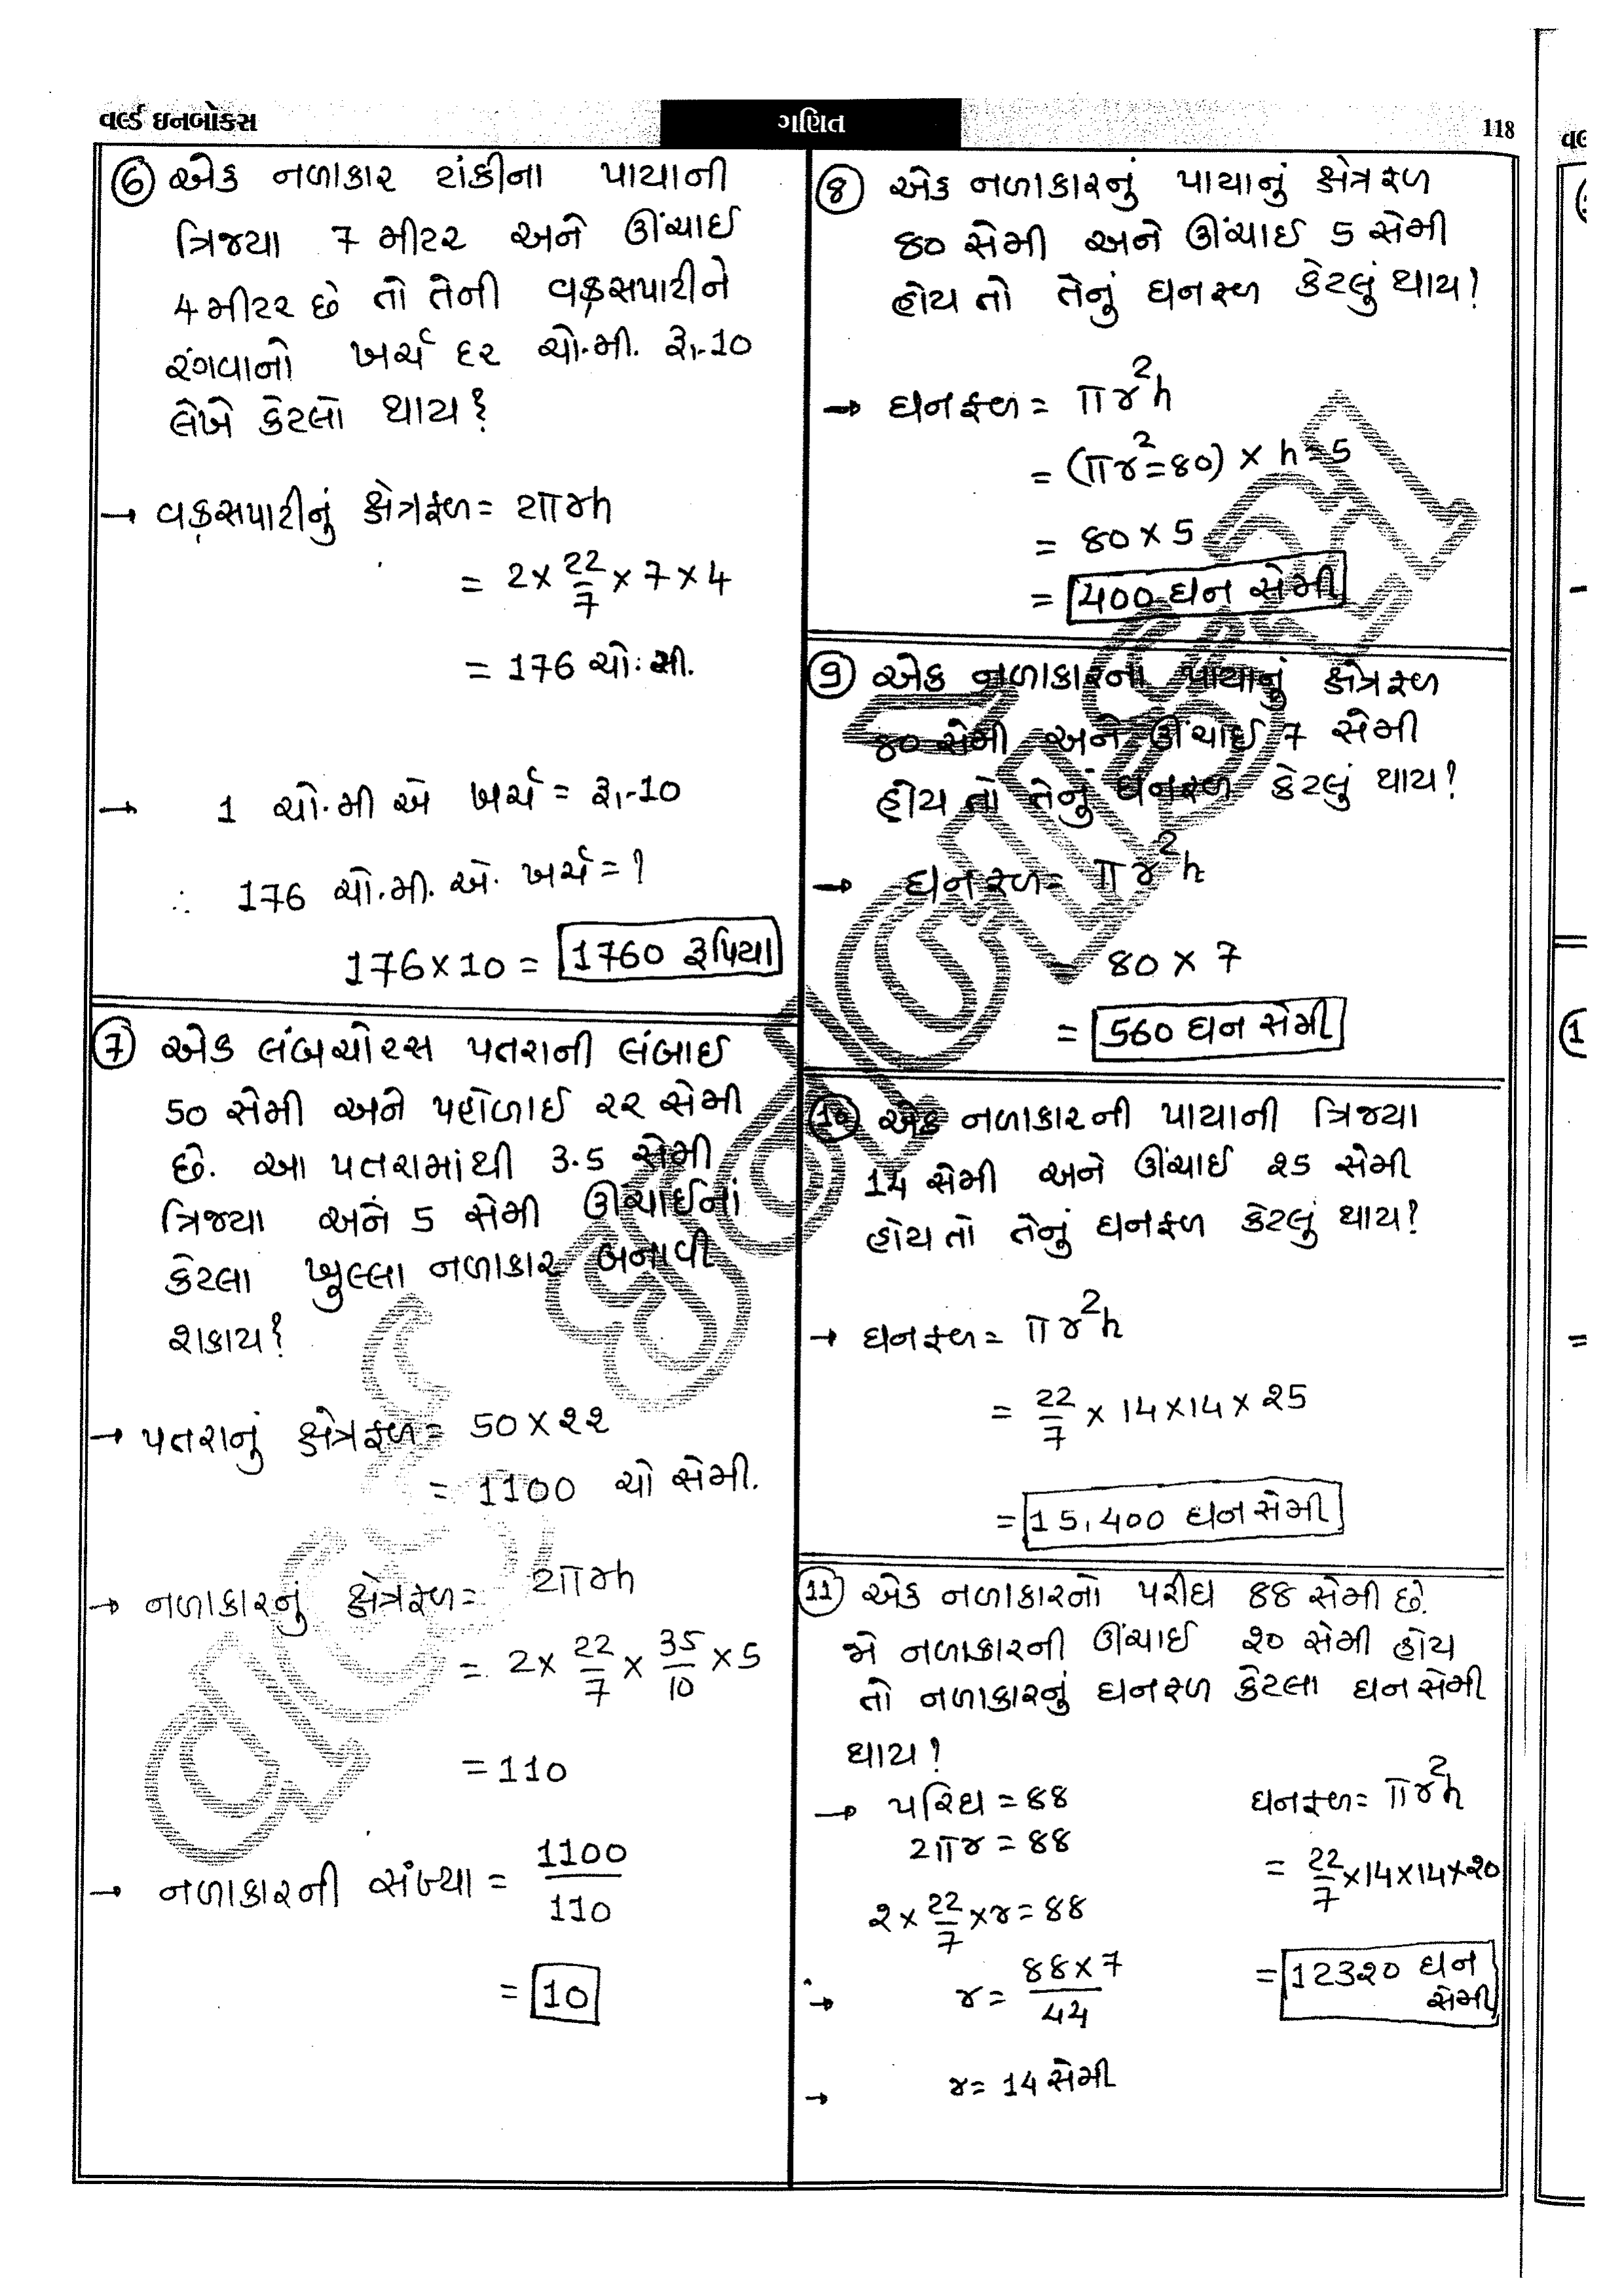 વર્લ્ડ ઇનબોક્સ
ગણિત
118
⑥ એક નળાકાર ટાંકીના પાયાની
ત્રિજ્યા 7 મીટર અને ઊંચાઈ
4 મીટર છે તો તેની વક્રસપાટીને
રંગવાનો ખર્ચ દર ચો.મી. રૂા.10
લેખે કેટલો થાય?
→ વક્રસપાટીનું ક્ષેત્રફળ = 2πrh
= 2 × 22/7 × 7 × 4
= 176 ચો. મી.
→ 1 ચો.મી એ ખર્ચ = રૂા.10
∴ 176 ચો.મી. એ. ખર્ચ = ?
176 × 10 = 1760 રૂપિયા
⑦ એક લંબચોરસ પતરાની લંબાઈ
50 સેમી અને પહોળાઈ ૨૨ સેમી
છે. આ પતરામાંથી 3.5 સેમી
ત્રિજ્યા અને 5 સેમી ઊંચાઈનાં
કેટલા ખુલ્લા નળાકાર બનાવી
શકાય?
→ પતરાનું ક્ષેત્રફળ = 50 × ૨૨
= 1100 ચો સેમી.
→ નળાકારનું ક્ષેત્રફળ = 2πrh
= 2 × 22/7 × 35/10 × 5
= 110
→ નળાકારની સંખ્યા = 1100/110
= 10
⑧ એક નળાકારનું પાયાનું ક્ષેત્રફળ
80 સેમી અને ઊંચાઈ 5 સેમી
હોય તો તેનું ઘનફળ કેટલું થાય?
→ ઘનફળ = πr²h
= (πr²=80) × h=5
= 80 × 5
= 400 ઘન સેમી
⑨ એક નળાકારના પાયાનું ક્ષેત્રફળ
80 સેમી અને ઊંચાઈ 7 સેમી
હોય તો તેનું ઘનફળ કેટલું થાય?
→ ઘનફળ = πr²h
= 80 × 7
= 560 ઘન સેમી
⑩ એક નળાકારની પાયાની ત્રિજ્યા
14 સેમી અને ઊંચાઈ ૨5 સેમી
હોય તો તેનું ઘનફળ કેટલું થાય?
→ ઘનફળ = πr²h
= 22/7 × 14×14 × ૨5
= 15,400 ઘન સેમી
⑪ એક નળાકારનો પરીઘ 88 સેમી છે.
જો નળાકારની ઊંચાઈ ૨0 સેમી હોય
તો નળાકારનું ઘનફળ કેટલા ઘન સેમી
થાય?
→ પરિઘ = 88
2πr = 88
૨ × 22/7 × r = 88
→ r = 88×7/44
→ r = 14 સેમી
ઘનફળ = πr²h
= 22/7 ×14×14×૨0
= 123૨0 ઘન
સેમી